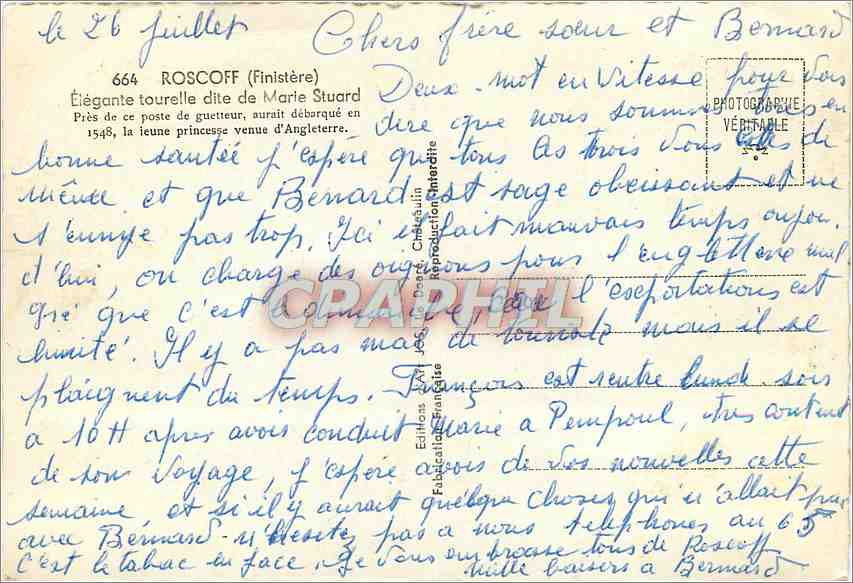 le 26 juillet Chers frère sœur et Bernard
664 ROSCOFF (Finistère)
Elégante tourelle dite de Marie Stuard
Près de ce poste de guetteur, aurait débarqué en
1548, la jeune princesse venue d'Angleterre.
PHOTOGRAPHIE
VÉRITABLE
Deux mot en Vitesse pour vous
dire que nous sommes tous en
bonne santée j'espère que tous les trois vous êtes de
même et que Bernard est sage obeissant et ne
s'ennuye pas trop. Ici il fait mauvais temps aujou.
d'hui, on charge des oignons pour l'engleterre mal
gré que c'est dimanche, car l'exportations est
limité. Il y a pas mal de touriste mais il se
plaignent du temps. François est rentré lundi soir
a 10H apres avoir conduit Marie a Pempoul, très content
de son voyage, j'espère avoir de vos nouvelles cette
semaine et si il y aurait quelque choses qui n'allait pas
avec Bernard n'hesitez pas a nous telephoner au 65
C'est le tabac en face. Je vous embrasse tous de Roscoff
mille baisers a Bernard
Editions d'Art JOS Le Doaré, Châteaulin
Fabrication Française
Reproduction Interdite
CPAPHIL